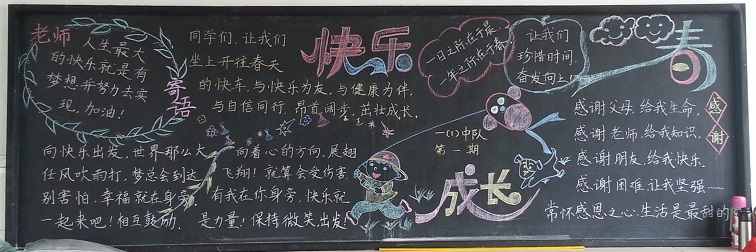 老师
寄语
人生最大
的快乐就是有
梦想并努力去实
现。加油！
同学们，让我们
坐上开往春天
的快车，与快乐为友，与健康为伴，
与自信同行，昂首阔步，茁壮成长。
快乐
一日之所在于晨，
一年之所在于春。
让我们
珍惜时间，
奋发向上！
春
向快乐出发，世界那么大
任风吹雨打，梦总会到达
别害怕，幸福就在身旁
一起来吧！相互鼓励，
向着心的方向，展翅
飞翔！就算会受伤害
有我在你身旁，快乐就
是力量！保持微笑出发！
一(1)中队
第一期
成长
感谢
感谢父母，给我生命，
感谢老师，给我知识，
感谢朋友，给我快乐，
感谢困难，让我坚强……
常怀感恩之心，生活是最甜的